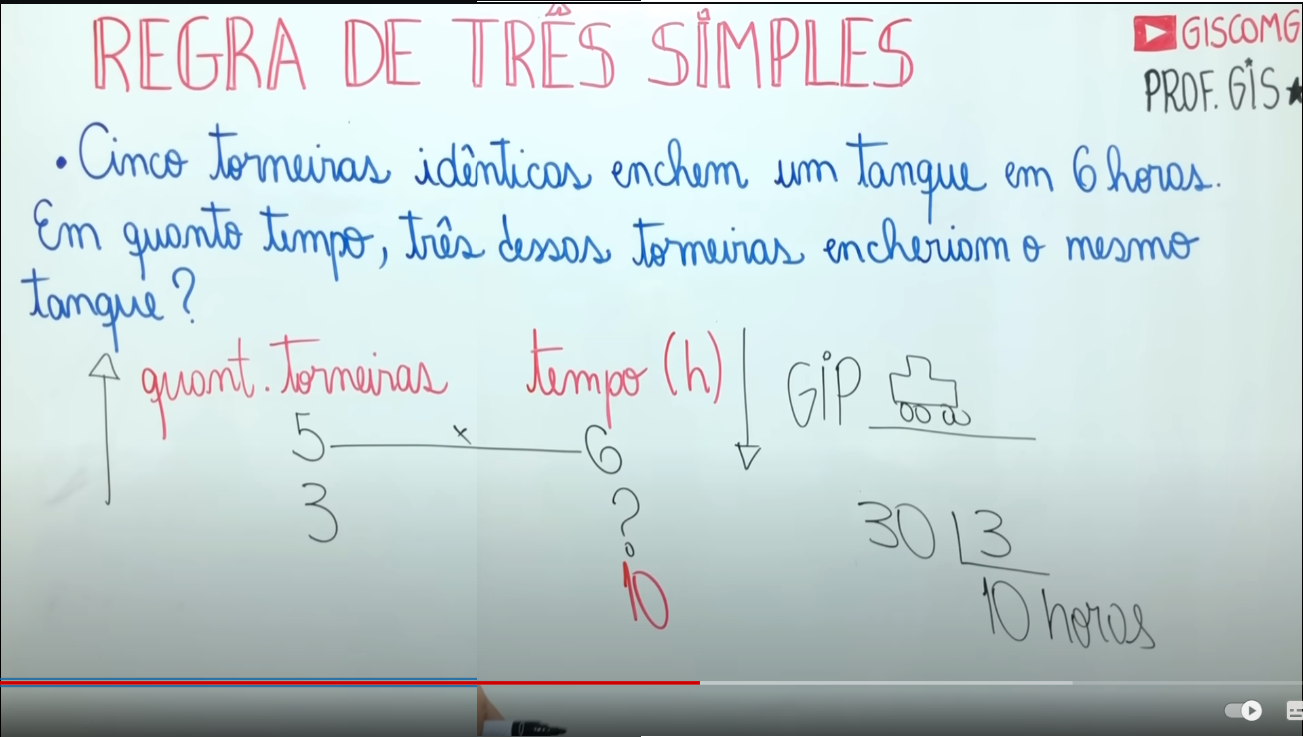 REGRA DE TRÊS SIMPLES
GISCOMG
PROF. GIS
• Cinco torneiras idênticas enchem um tanque em 6 horas.
Em quanto tempo, três dessas torneiras encheriam o mesmo
tanque?
quant. torneiras tempo (h) GIP
5 x 6
3 ?
30 3
10
10 horas